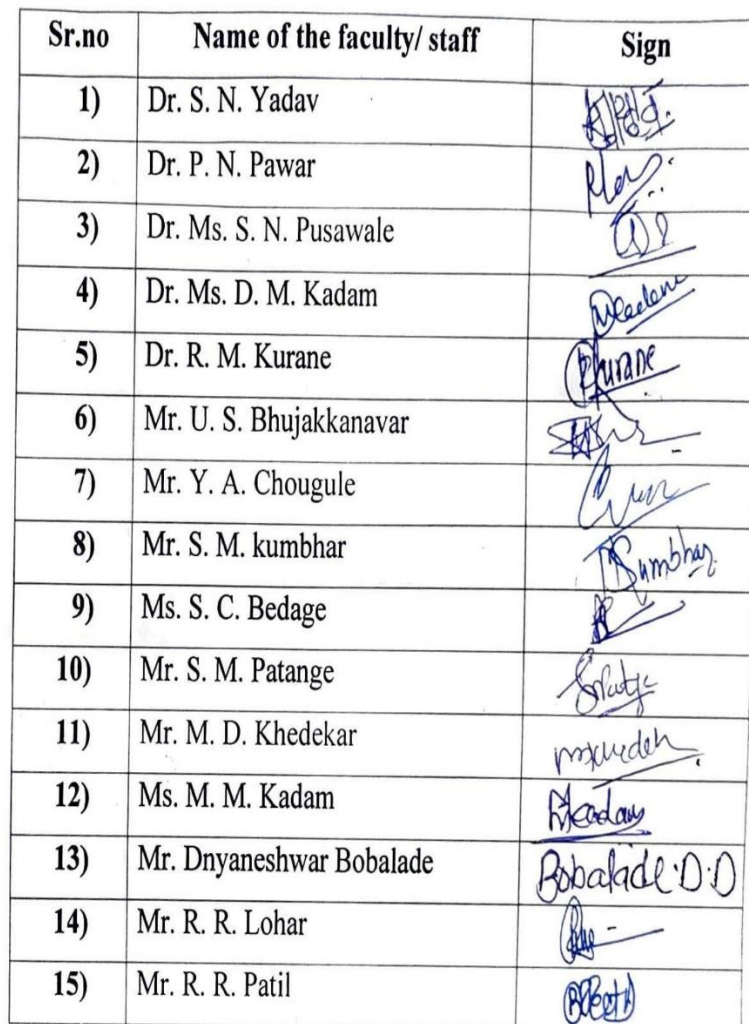 Sr.no Name of the faculty/ staff Sign
1) Dr. S. N. Yadav
2) Dr. P. N. Pawar
3) Dr. Ms. S. N. Pusawale
4) Dr. Ms. D. M. Kadam
5) Dr. R. M. Kurane
6) Mr. U. S. Bhujakkanavar
7) Mr. Y. A. Chougule
8) Mr. S. M. kumbhar
9) Ms. S. C. Bedage
10) Mr. S. M. Patange
11) Mr. M. D. Khedekar
12) Ms. M. M. Kadam
13) Mr. Dnyaneshwar Bobalade Bobalade.D.D
14) Mr. R. R. Lohar
15) Mr. R. R. Patil